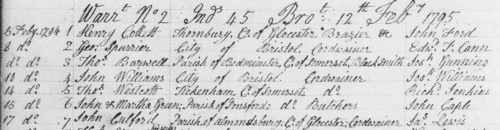 Warrt. No. 2 Ind. 45 Brot. 12th Feby. 1795
5 Feby. 1794 1 Henry Collett Thornbury, C. of Glocester Brazier &c John Ford
8 do. 2 Geo. Spurrier City of Bristol Cordwainer Edwd. T. Cann
do. do. 3 Thos. Barwell Parish of Bedminster, C. of Somerset, Black Smith Jos. Gunning
10 do. 4 John Williams City of Bristol Cordwainer Jos. Williams
14 do. 5 Thos. Westcott Tickenham, C. of Somerset, do. Richd. Jenkins
16 do. 6 John & Martha Green, Parish of do. Butchers John Cagle
17 do. 7 John Parish of Almondsbury C. of Glocester, Cordwainer Jas. Lewis